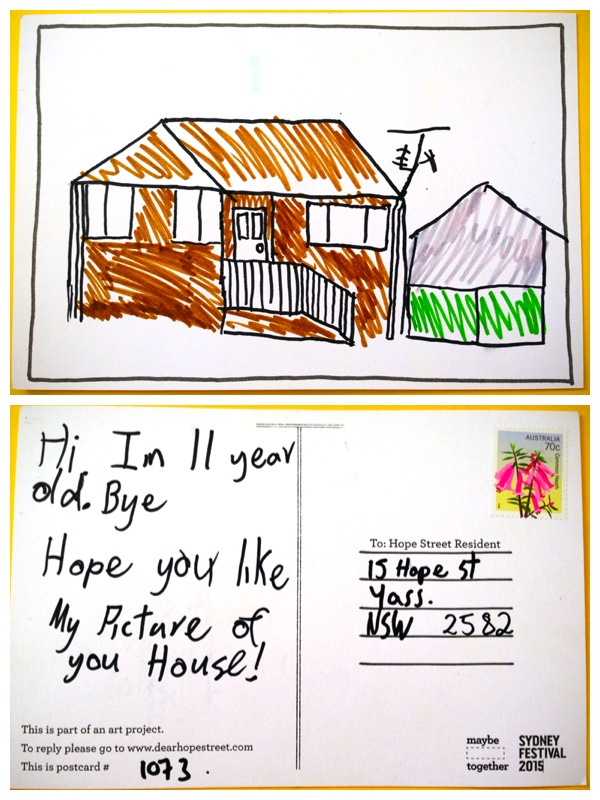 Hi. Im 11 year
old. Bye
Hope you like
My Picture of
you House!
This is part of an art project.
To reply please go to www.dearhopestreet.com
This is postcard # 1073.
AUSTRALIA
70c
Common Heath
To: Hope Street Resident
15 Hope st
Yass.
NSW 2582
maybe
together
SYDNEY
FESTIVAL
2015